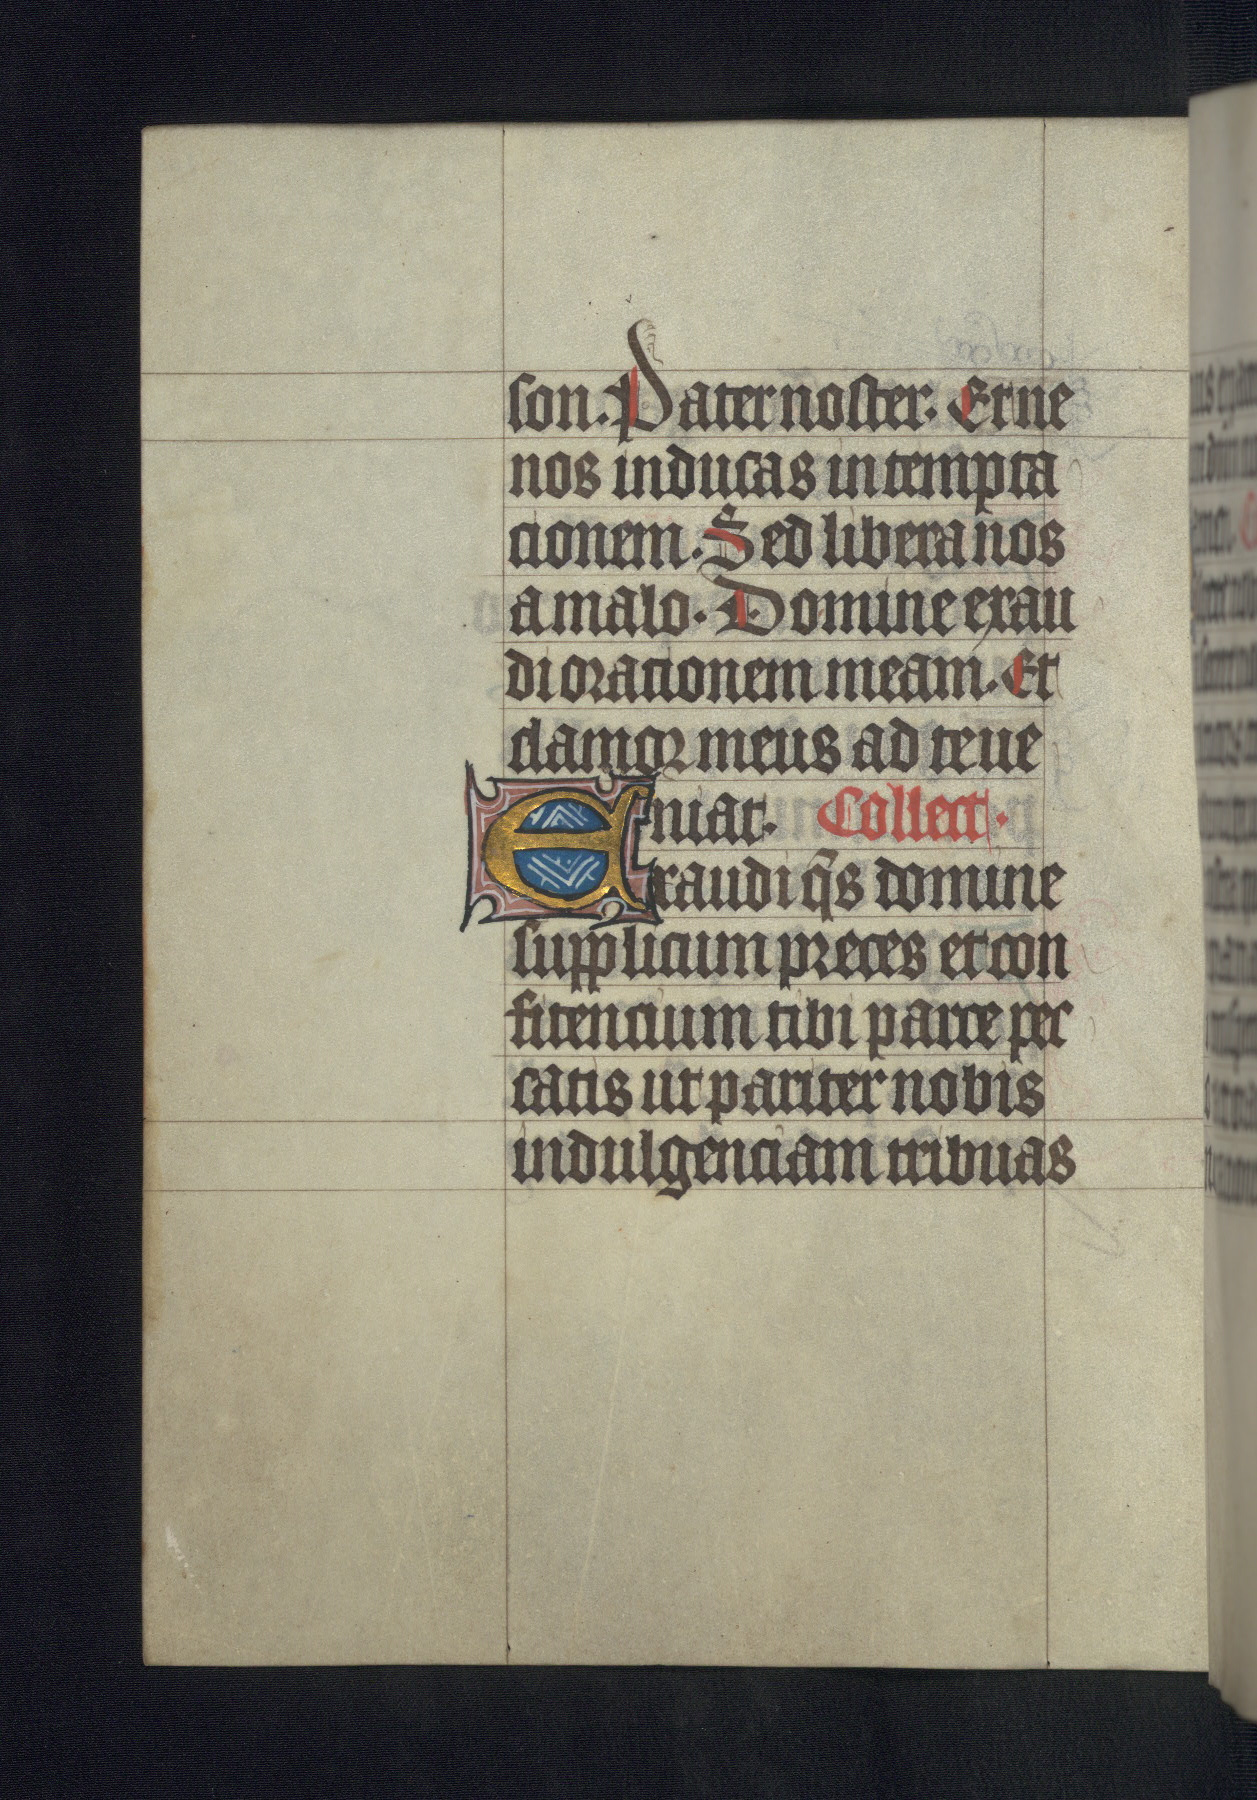 son. Pater noster. Et ne
nos inducas in tempta
cionem. Sed libera nos
a malo. Domine exau
di orationem meam. Et
clamor meus ad te ue
niat. Collect.
Exaudi q̄s domine
supplicum preces et con
fitencium tibi parce pec
catis ut pariter nobis
indulgenciam tribuas